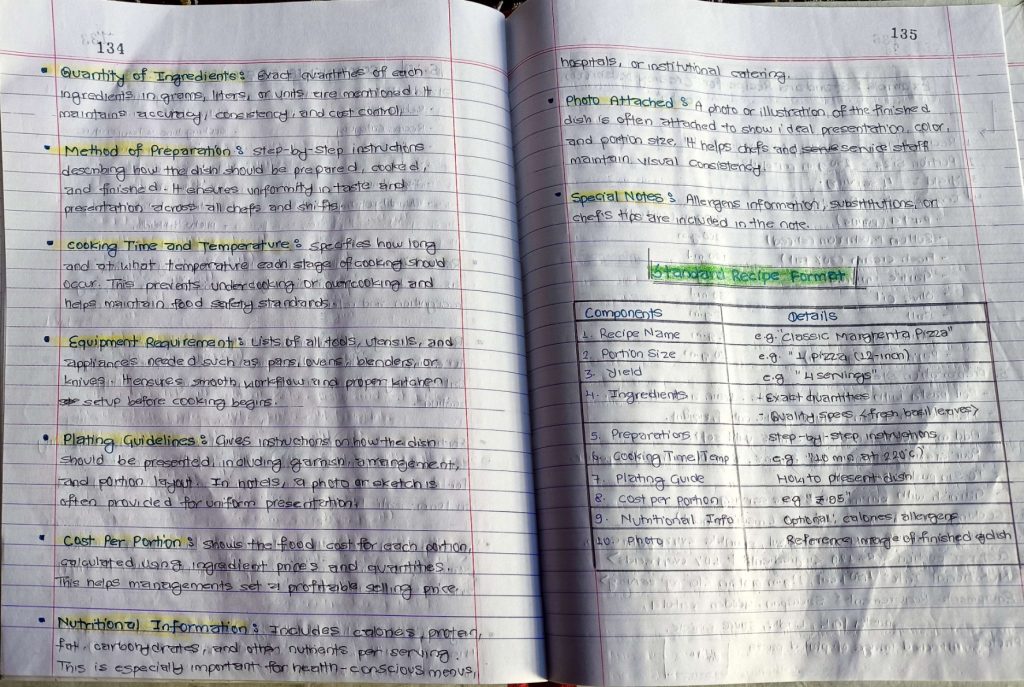 134
• Quantity of Ingredients : Exact quantities of each
ingredients in grams, liters, or units are mentioned. It
maintains accuracy, consistency, and cost control.
• Method of Preparation : step-by-step instructions
describing how the dish should be prepared, cooked,
and finished. It ensures uniformity in taste and
presentation across all chefs and shifts.
• Cooking Time and Temperature : specifies how long
and at what temperature each stage of cooking should
occur. This prevents undercooking or overcooking and
helps maintain food safety standards.
• Equipment Requirement : Lists of all tools, utensils, and
appliances needed such as pans, ovens, blenders, or
knives. It ensures smooth workflow and proper kitchen
setup before cooking begins.
• Plating Guidelines : Gives instructions on how the dish
should be presented, including garnish, arrangement,
and portion layout. In hotels, a photo or sketch is
often provided for uniform presentation.
• Cost Per Portion : shows the food cost for each portion,
calculated using ingredient prices and quantities.
This helps managements set a profitable selling price.
• Nutritional Information : Includes calories, protein,
fat, carbohydrates, and other nutrients per serving.
This is especially important for health-conscious menus,
135
hospitals, or institutional catering.
• Photo Attached : A photo or illustration of the finished
dish is often attached to show ideal presentation, color,
and portion size. It helps chefs and service staff
maintain visual consistency.
• Special Notes : Allergens information, substitutions, or
chef's tips are included in the note.
Standard Recipe Format
Components Details
1. Recipe Name e.g. "Classic Margherita Pizza"
2. Portion Size e.g. "1 pizza (12-inch)
3. Yield e.g "4 servings"
4. Ingredients - Exact quantities
- Quality specs (fresh basil leaves)
5. Preparation step-by-step instructions
6. Cooking Time/Temp e.g. "10 min at 220°C)
7. Plating Guide How to present dish
8. Cost per Portion eg "₹.95"
9. Nutritional Info Optional: calories, allergens
10. Photo Reference image of finished dish